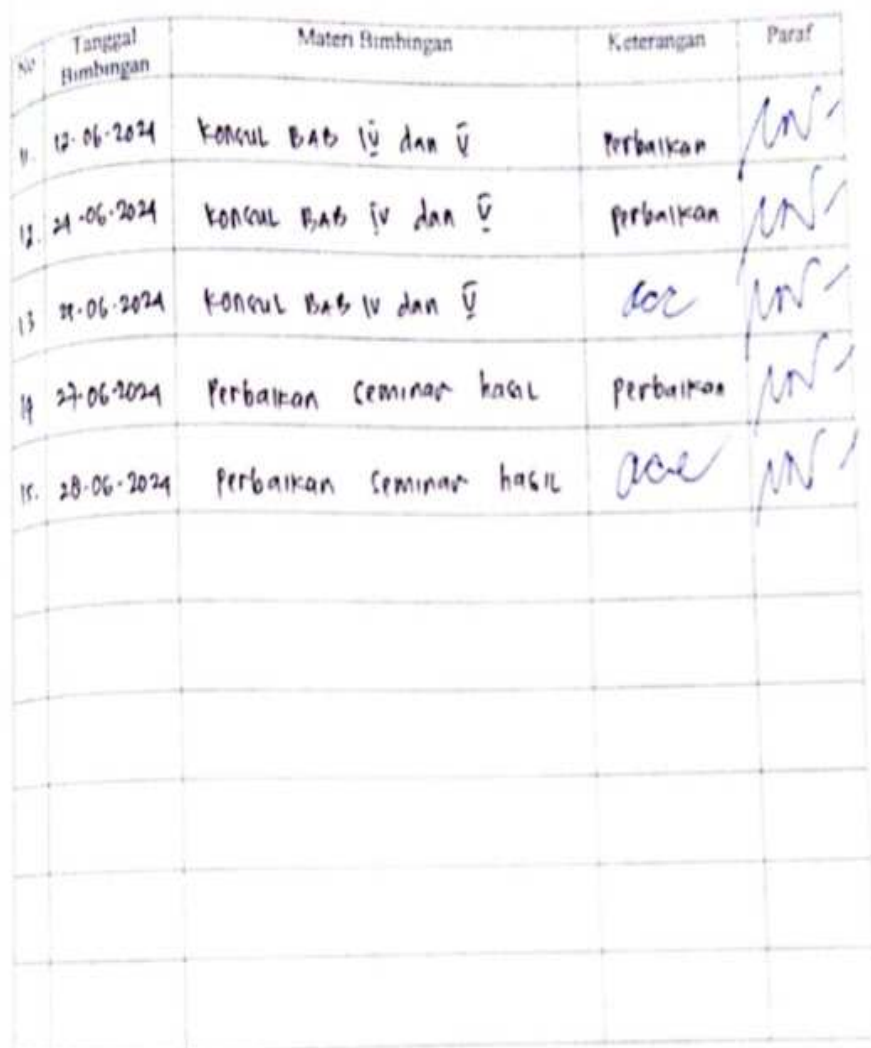 No Tanggal Bimbingan Materi Bimbingan Keterangan Paraf
11. 12-06-2024 Konsul BAB IV dan V Perbaikan
12. 24-06-2024 Konsul BAB IV dan V perbaikan
13 -06-2024 Konsul BAB IV dan V acc
14 27-06-2024 Perbaikan Seminar hasil perbaikan
15. 28-06-2024 Perbaikan Seminar hasil acc